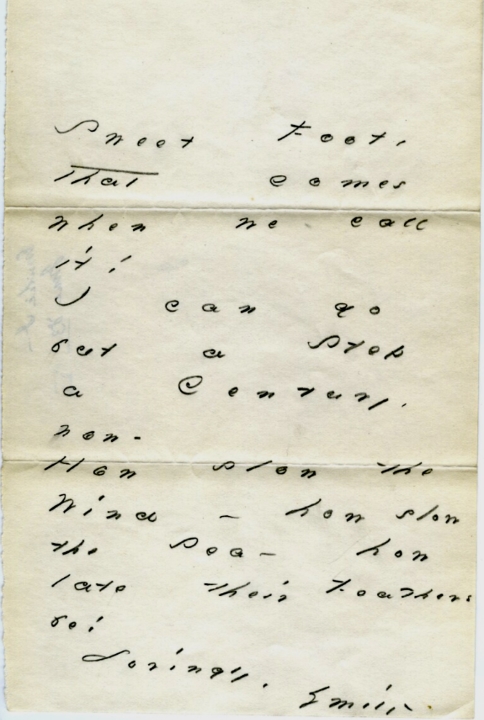 Sweet Foot,
that comes
when we call
it!
I can go
but a Step
a Century,
now -
How slow the
Wind - how slow
the Sea - how
late their Feathers
be!
Lovingly,
Emily